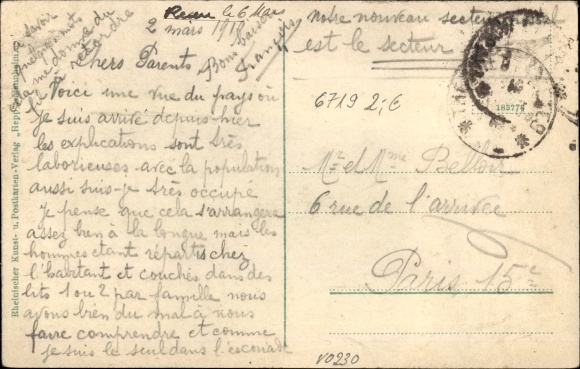 Reçu le 6 Mars
2 mars 1919
Chers Parents
Voici une vue du pays où
je suis arrivé depuis hier
les explications sont très
laborieuses avec la population
aussi suis-je très occupé
je pense que cela s'arrangera
assez bien à la longue mais les
hommes étant répartis chez
l'habitant et couchés dans des
lits 1 ou 2 par famille nous
avons bien du mal à nous
faire comprendre et comme
je suis le seul dans l'escouade
à savoir
me donne du
à retordre
Bons baisers
François
notre nouveau secteur
est le secteur
6719 2,€
183776
Mr et Mme Bellou
6 rue de l'arrivée
Paris 15e
V0230
Rheinischer Kunst- u. Postkarten-Verlag